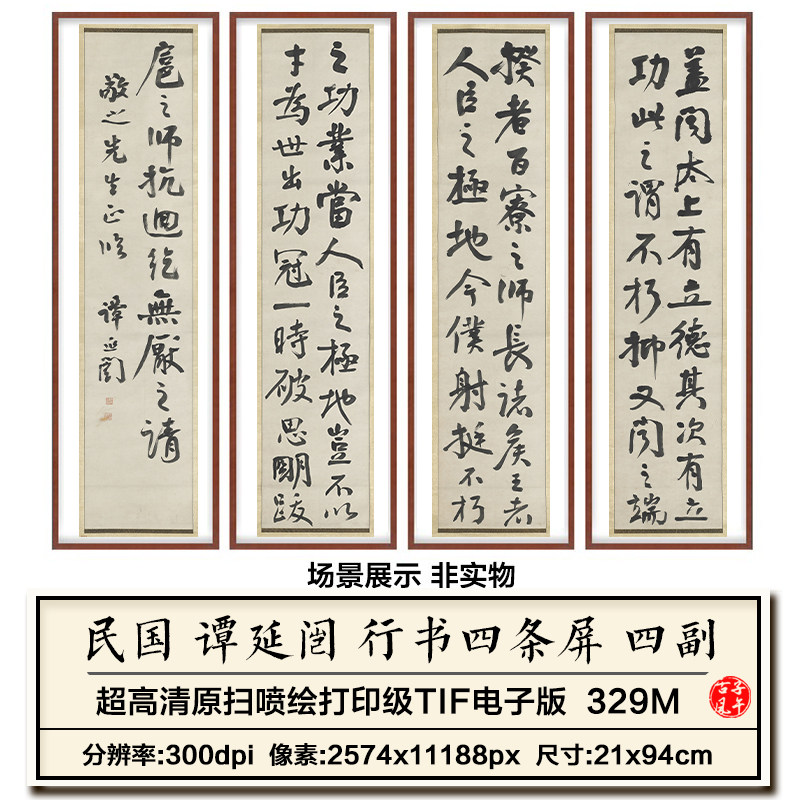 蓋聞太上有立德其次有立
功此之謂不朽抑又聞之端
揆者百寮之師長諸侯王者
人臣之極地今僕射挺不朽
之功業當人臣之極地豈不以
才為世出功冠一時破思明跋
扈之師抗迴紇無厭之請
敬之先生正臨 譚延闓
场景展示 非实物
民国 谭延闿 行书四条屏 四副
超高清原扫喷绘打印级TIF电子版 329M
子午古风
分辨率:300dpi 像素:2574x11188px 尺寸:21x94cm